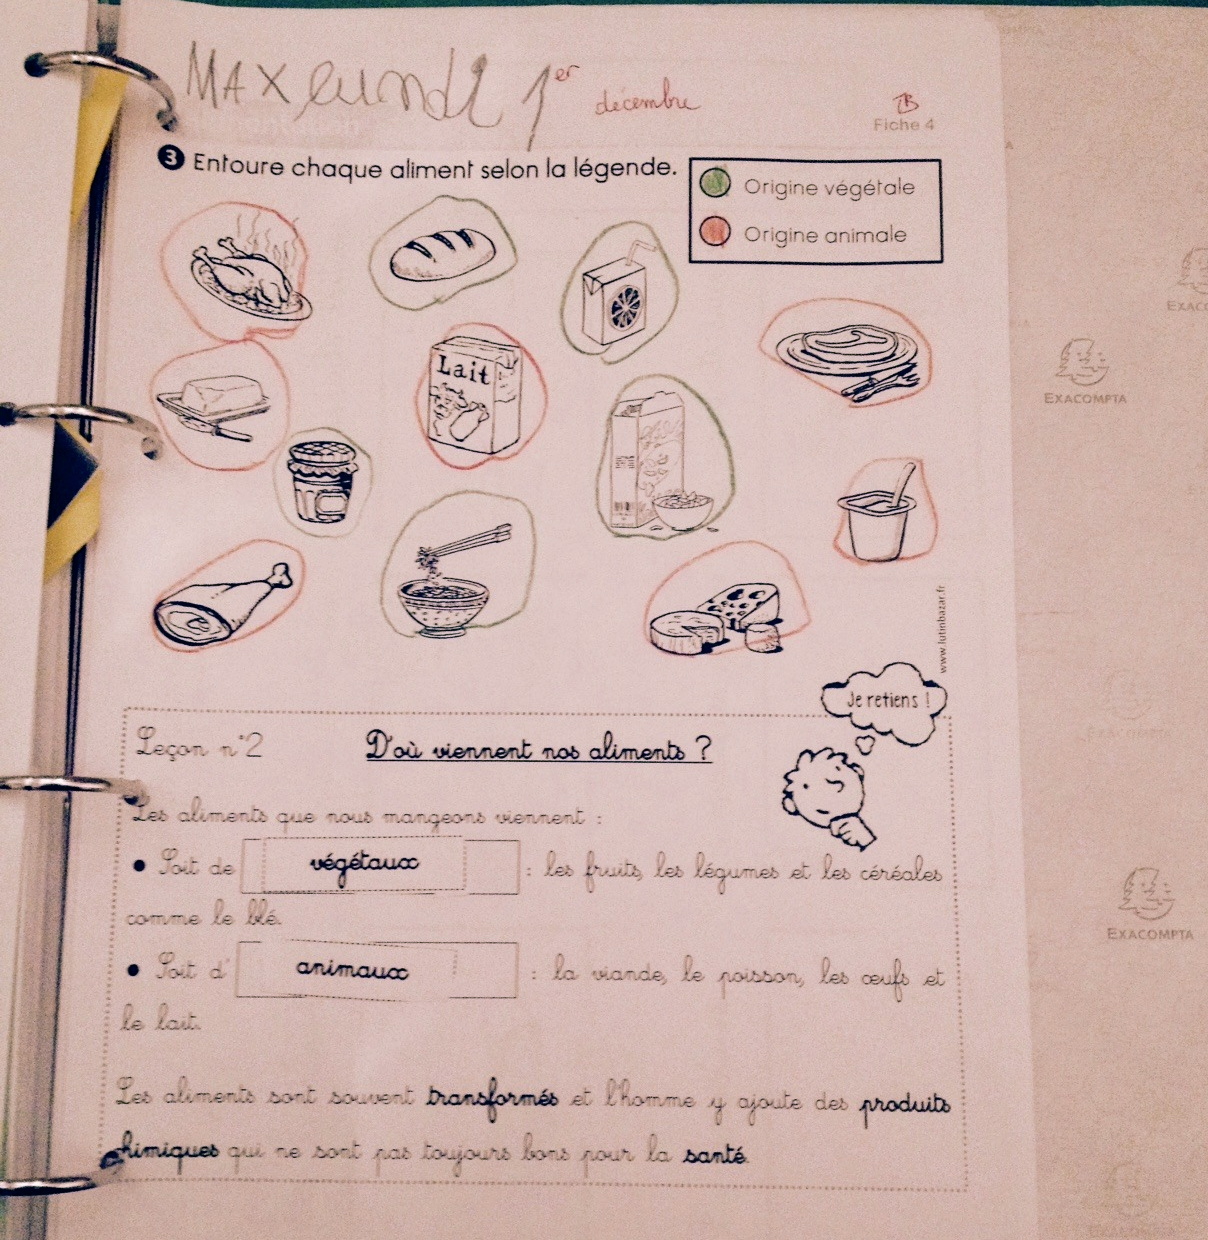 MAX lundi 1er décembre
TB
Fiche 4
3 Entoure chaque aliment selon la légende.
Origine végétale
Origine animale
Lait
EXACOMPTA
EXACOMPTA
www.lutinbazar.fr
Je retiens !
Leçon n°2 D'où viennent nos aliments ?
Les aliments que nous mangeons viennent :
• Soit de végétaux : les fruits, les légumes et les céréales
comme le blé.
• Soit d' animaux : la viande, le poisson, les œufs et
le lait.
EXACOMPTA
Les aliments sont souvent transformés et l'homme y ajoute des produits
himiques qui ne sont pas toujours bons pour la santé.